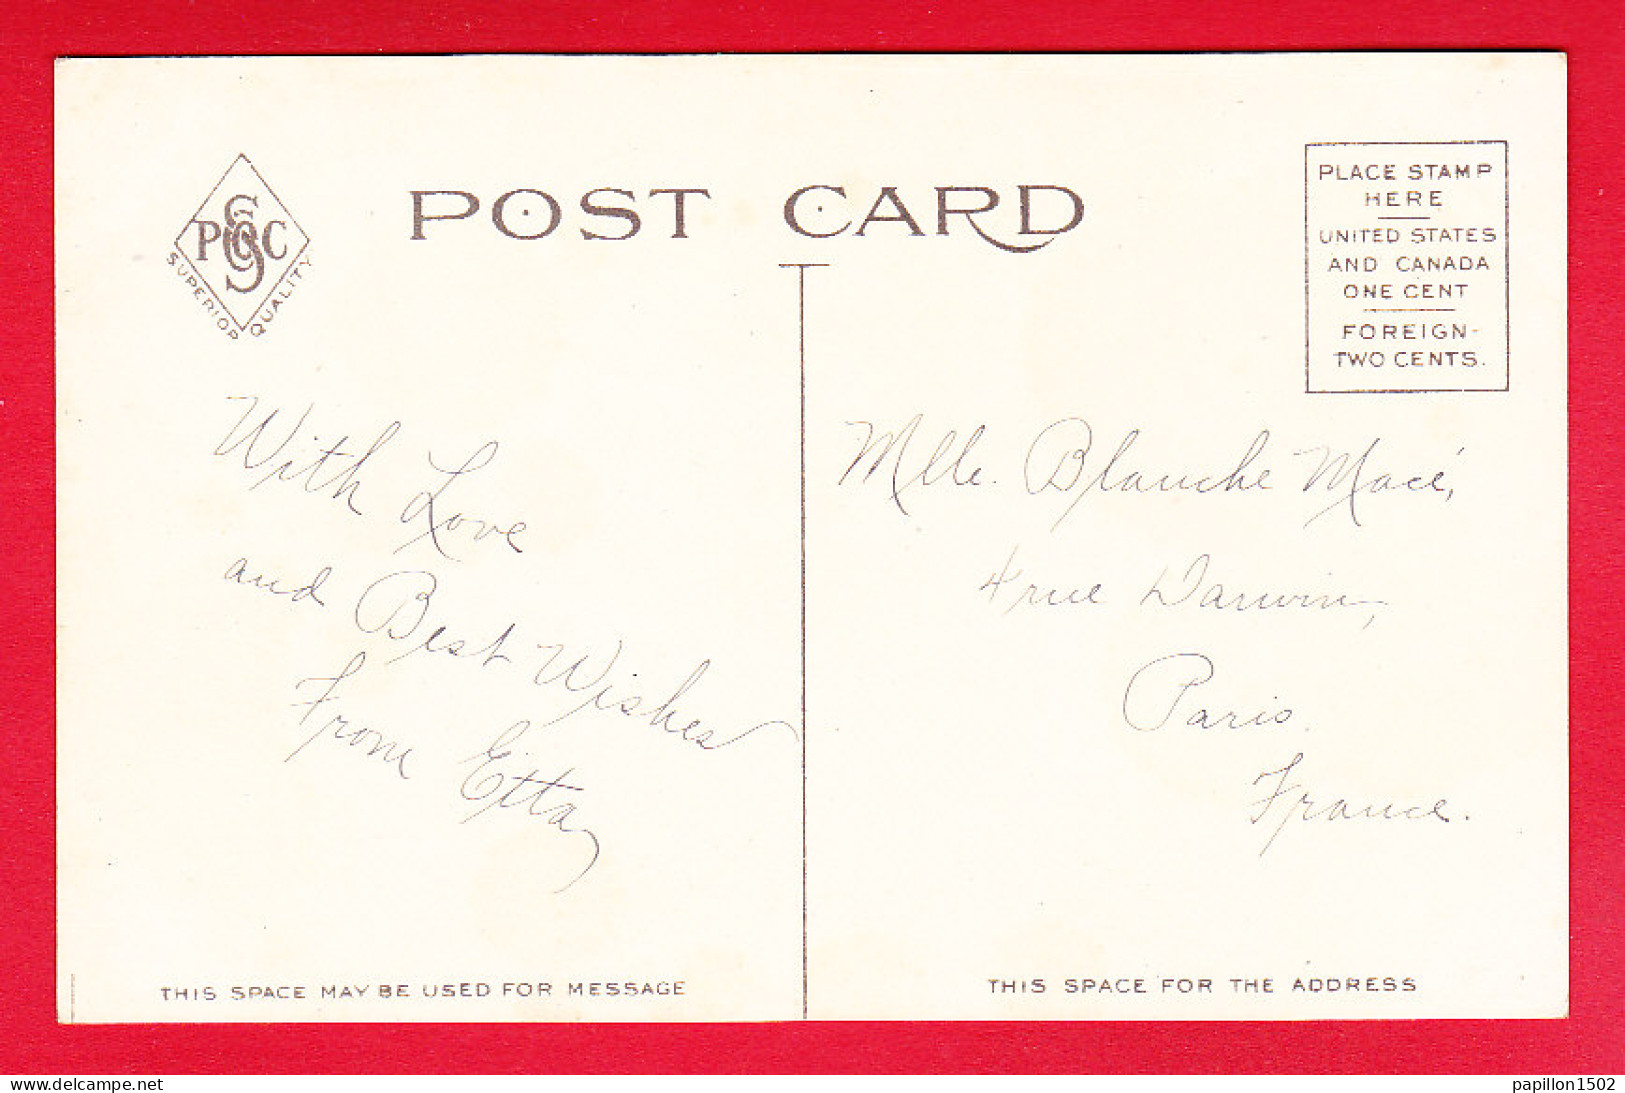 POST CARD
PSC
SUPERIOR QUALITY
PLACE STAMP
HERE
UNITED STATES
AND CANADA
ONE CENT
FOREIGN-
TWO CENTS.
With Love
and Best Wishes
From Etta
Mlle. Blanche Macé,
4 rue Darwin,
Paris.
France.
THIS SPACE MAY BE USED FOR MESSAGE
THIS SPACE FOR THE ADDRESS
delcampe.net
papillon1502